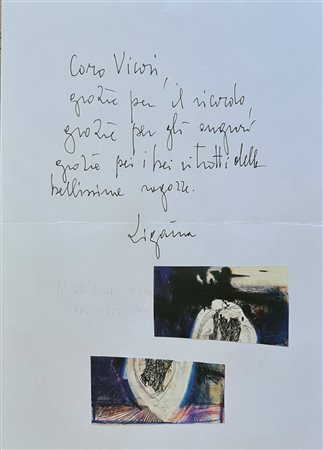 Caro Vicari,
grazie per il ricordo,
grazie per gli auguri
grazie pei i bei ritratti delle
bellissime ragazze.